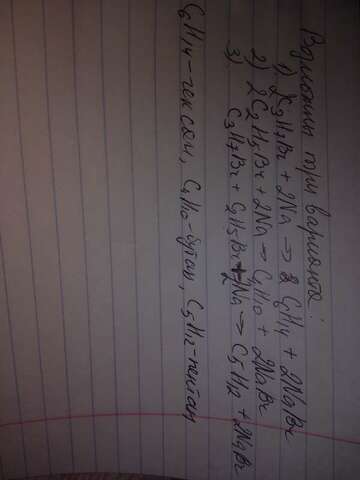 Возможны три варианта:
1) 2C3H7Br + 2Na → C6H14 + 2NaBr
2) 2C2H5Br + 2Na → C4H10 + 2NaBr
3) C3H7Br + C2H5Br + 2Na → C5H12 + 2NaBr
C6H14 - гексан, C4H10 - бутан, C5H12 - пентан